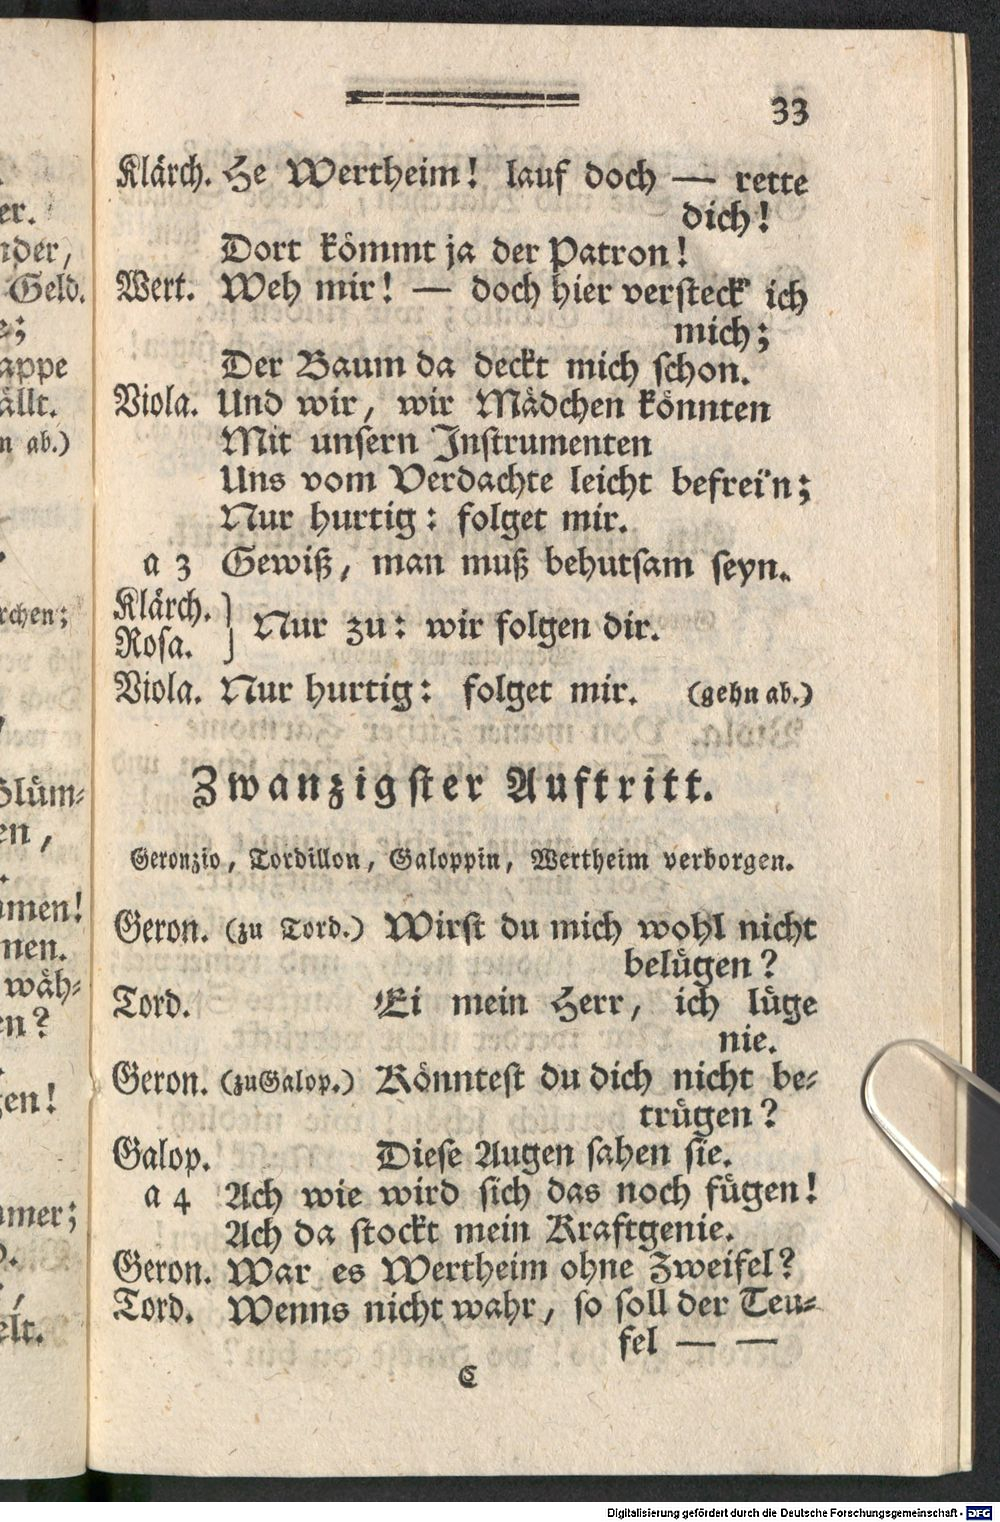 33
Klärch. He Wertheim! lauf doch — rette
dich!
Dort kömmt ja der Patron!
Wert. Weh mir! — doch hier versteck' ich
mich;
Der Baum da deckt mich schon.
Viola. Und wir, wir Mädchen könnten
Mit unsern Instrumenten
Uns vom Verdachte leicht befrei'n;
Nur hurtig: folget mir.
a 3 Gewiß, man muß behutsam seyn.
Klärch.
Rosa. } Nur zu: wir folgen dir.
Viola. Nur hurtig: folget mir. (gehn ab.)
Zwanzigster Auftritt.
Geronzio, Tordillon, Galoppin, Wertheim verborgen.
Geron. (zu Tord.) Wirst du mich wohl nicht
belügen?
Tord. Ei mein Herr, ich lüge
nie.
Geron. (zu Galop.) Könntest du dich nicht be-
trügen?
Galop. Diese Augen sahen sie.
a 4 Ach wie wird sich das noch fügen!
Ach da stockt mein Kraftgenie.
Geron. War es Wertheim ohne Zweifel?
Tord. Wenns nicht wahr, so soll der Teu-
fel — —
C
er.
nder,
Geld.
e;
appe
ällt.
n ab.)
rchen;
Blüm-
en,
mmen!
men.
wäh-
en?
gen!
mmer;
elt.
Digitalisierung gefördert durch die Deutsche Forschungsgemeinschaft - DFG